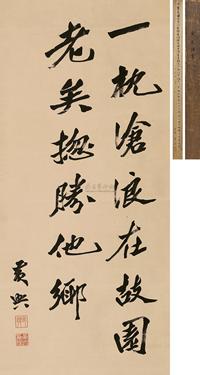 一枕滄浪在故園
老矣揔勝他鄉
黄興